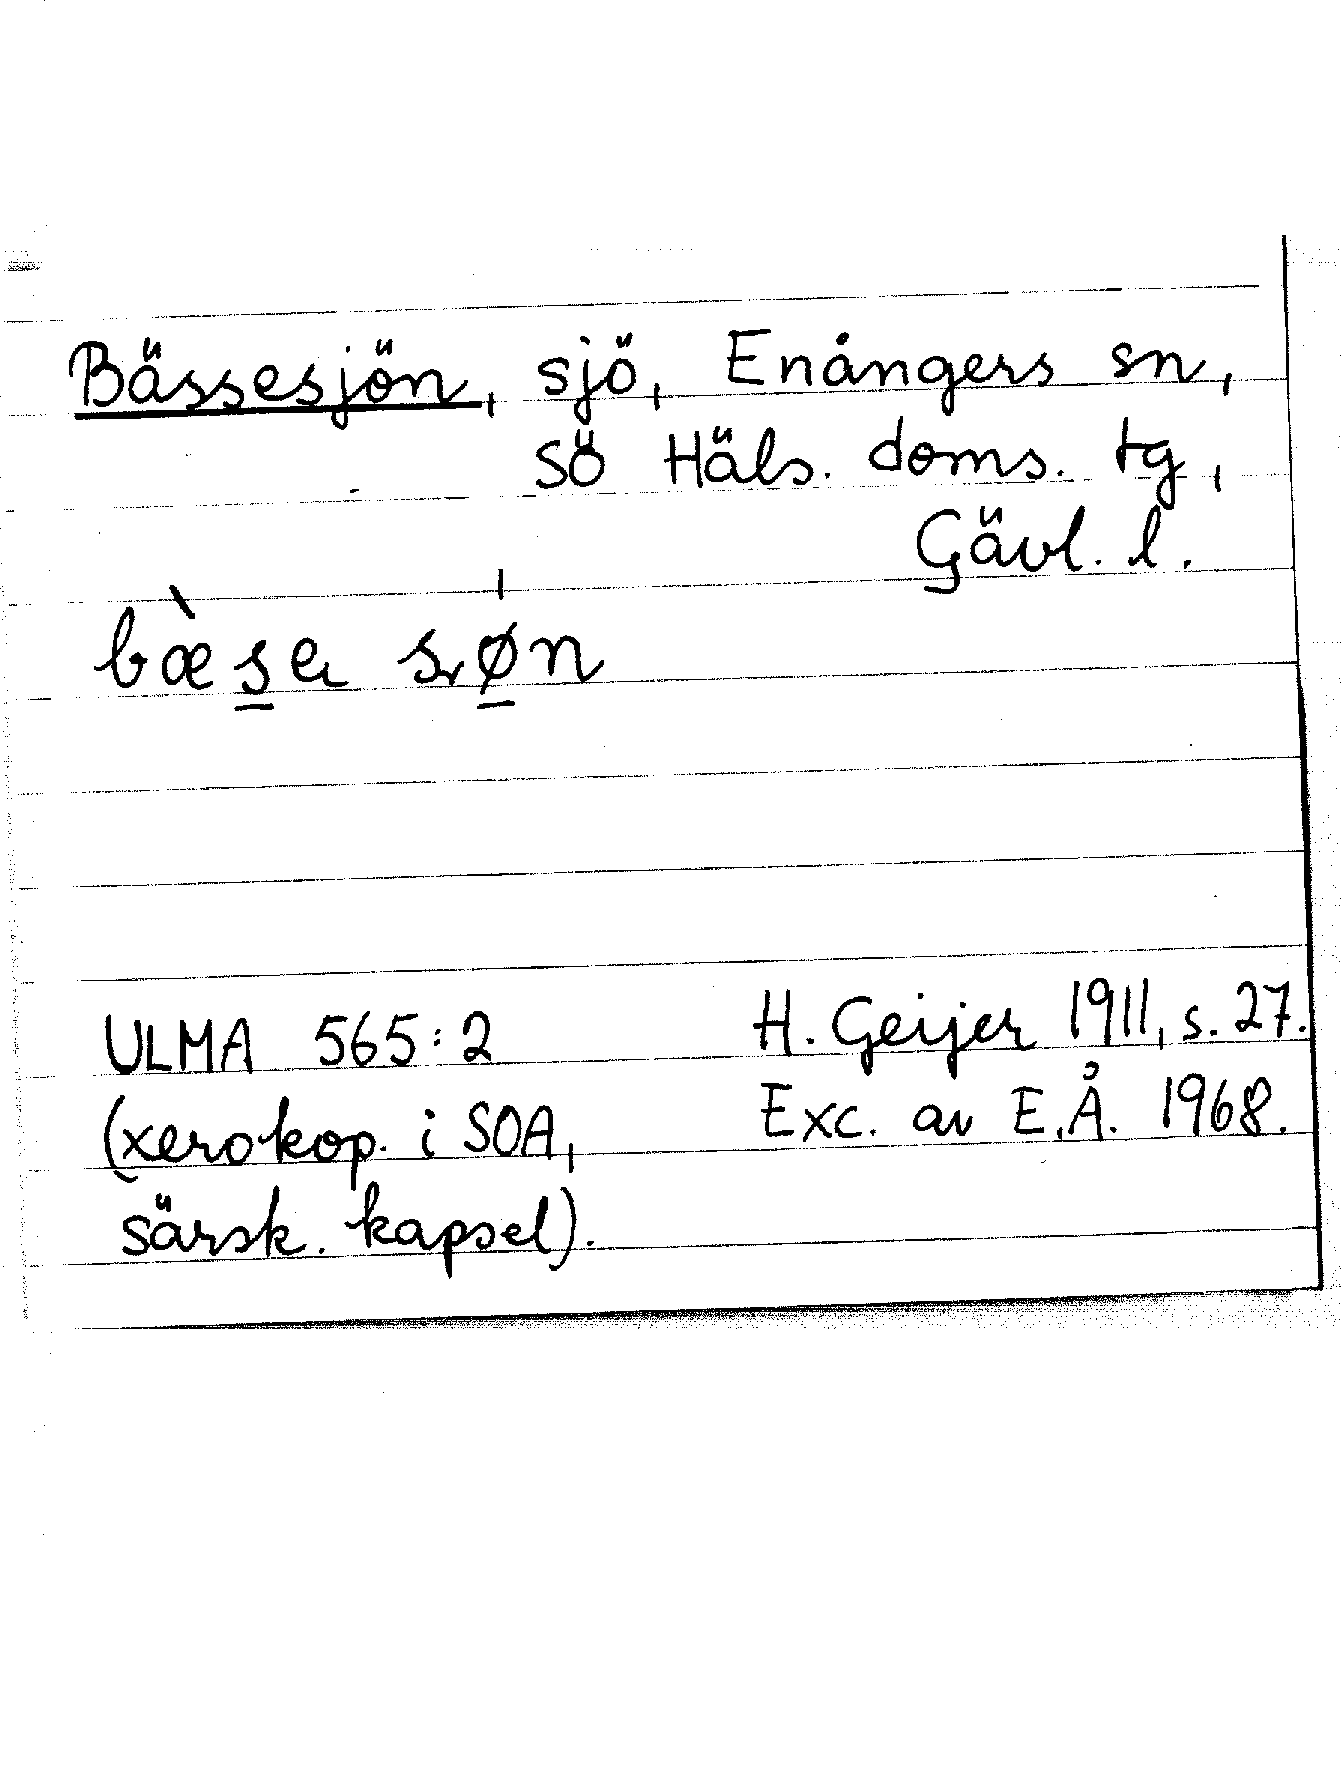 Bässesjön, sjö, Enångers sn,
Sö Häls. doms. tg,
Gävl. l.
bæ̀s̲e sø̲n
ULMA 565:2
(xerokop. i SOA,
särsk. kapsel).
H. Geijer 1911, s. 27.
Exc. av E.Å. 1968.